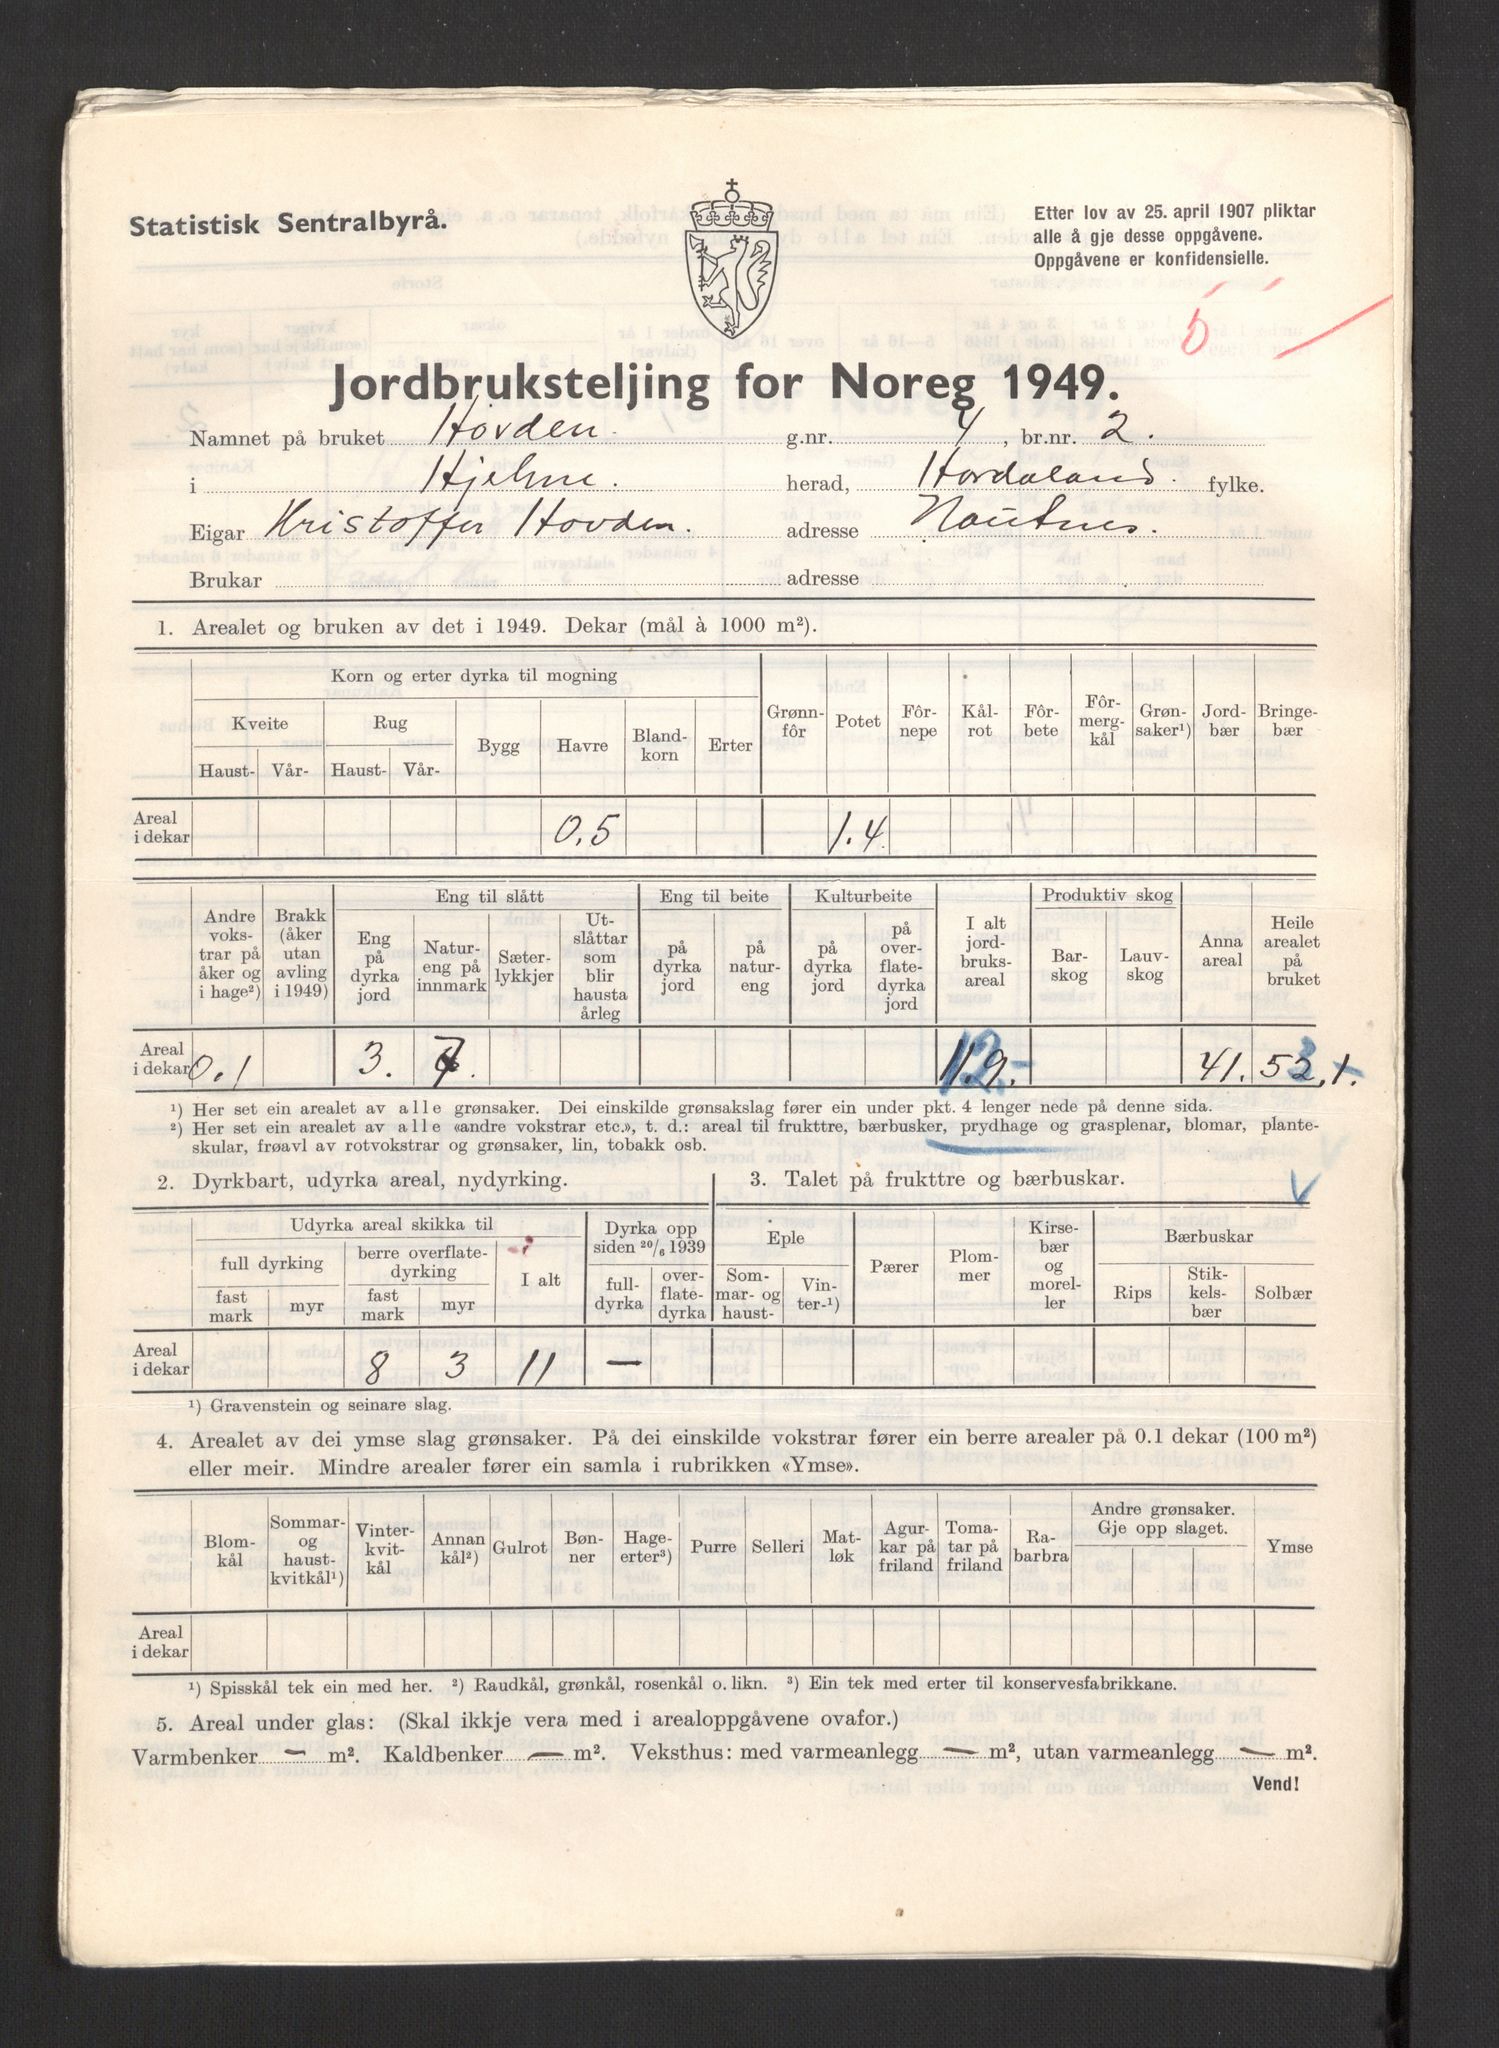 Statistisk Sentralbyrå.
Etter lov av 25. april 1907 pliktar
alle å gje desse oppgåvene.
Oppgåvene er konfidensielle.
Jordbruksteljing for Noreg 1949.
Namnet på bruket Hovden. g.nr. 4, br.nr. 2.
i Hjelme. herad, Hordaland. fylke.
Eigar Kristoffer Hovden. adresse Nautnes.
Brukar adresse
1. Arealet og bruken av det i 1949. Dekar (mål à 1000 m²).
Korn og erter dyrka til mogning
Kveite Rug Bygg Havre Bland-korn Erter Grønn-fôr Potet Fôr-nepe Kål-rot Fôr-bete Fôr-merg-kål Grøn-saker¹) Jord-bær Bringe-bær
Haust- Vår- Haust- Vår-
Areal i dekar 0.5 1.4
Eng til slått Eng til beite Kulturbeite Produktiv skog
Andre voks-trar på åker og i hage²) Brakk (åker utan avling i 1949) Eng på dyrka jord Natur-eng på innmark Sæter-lykkjer Ut-slåttar som blir hausta årleg på dyrka jord på natur-eng på dyrka jord på over-flate-dyrka jord I alt jord-bruks-areal Bar-skog Lauv-skog Anna areal Heile arealet på bruket
Areal i dekar 0.1 3. 7. 11.9. 12.- 41. 52,1.
¹) Her set ein arealet av alle grønsaker. Dei einskilde grønsakslag fører ein under pkt. 4 lenger nede på denne sida.
²) Her set ein arealet av alle «andre vokstrar etc.», t. d.: areal til frukttre, bærbusker, prydhage og grasplenar, blomar, plante-
skular, frøavl av rotvokstrar og grønsaker, lin, tobakk osb.
2. Dyrkbart, udyrka areal, nydyrking. 3. Talet på frukttre og bærbuskar.
Udyrka areal skikka til Dyrka opp siden 20/6 1939 Eple Pærer Plom-mer Kirse-bær og morel-ler Bærbuskar
full dyrking berre overflate-dyrking I alt full-dyrka over-flate-dyrka Som-mar- og haust- Vin-ter-¹) Rips Stik-kels-bær Solbær
fast mark myr fast mark myr
Areal i dekar 8 3 11 —
¹) Gravenstein og seinare slag.
4. Arealet av dei ymse slag grønsaker. På dei einskilde vokstrar fører ein berre arealer på 0.1 dekar (100 m²)
eller meir. Mindre arealer fører ein samla i rubrikken «Ymse».
Blom-kål Sommar- og haust-kvitkål¹) Vinter-kvit-kål Annan kål²) Gulrot Bøn-ner Hage-erter³) Purre Selleri Mat-løk Agur-kar på friland Toma-tar på friland Ra-barbra Andre grønsaker. Gje opp slaget. Ymse
Areal i dekar
¹) Spisskål tek ein med her. ²) Raudkål, grønkål, rosenkål o. likn. ³) Ein tek med erter til konservesfabrikkane.
5. Areal under glas: (Skal ikkje vera med i arealoppgåvene ovafor.)
Varmbenker — m². Kaldbenker — m². Veksthus: med varmeanlegg — m², utan varmeanlegg — m².
Vend!